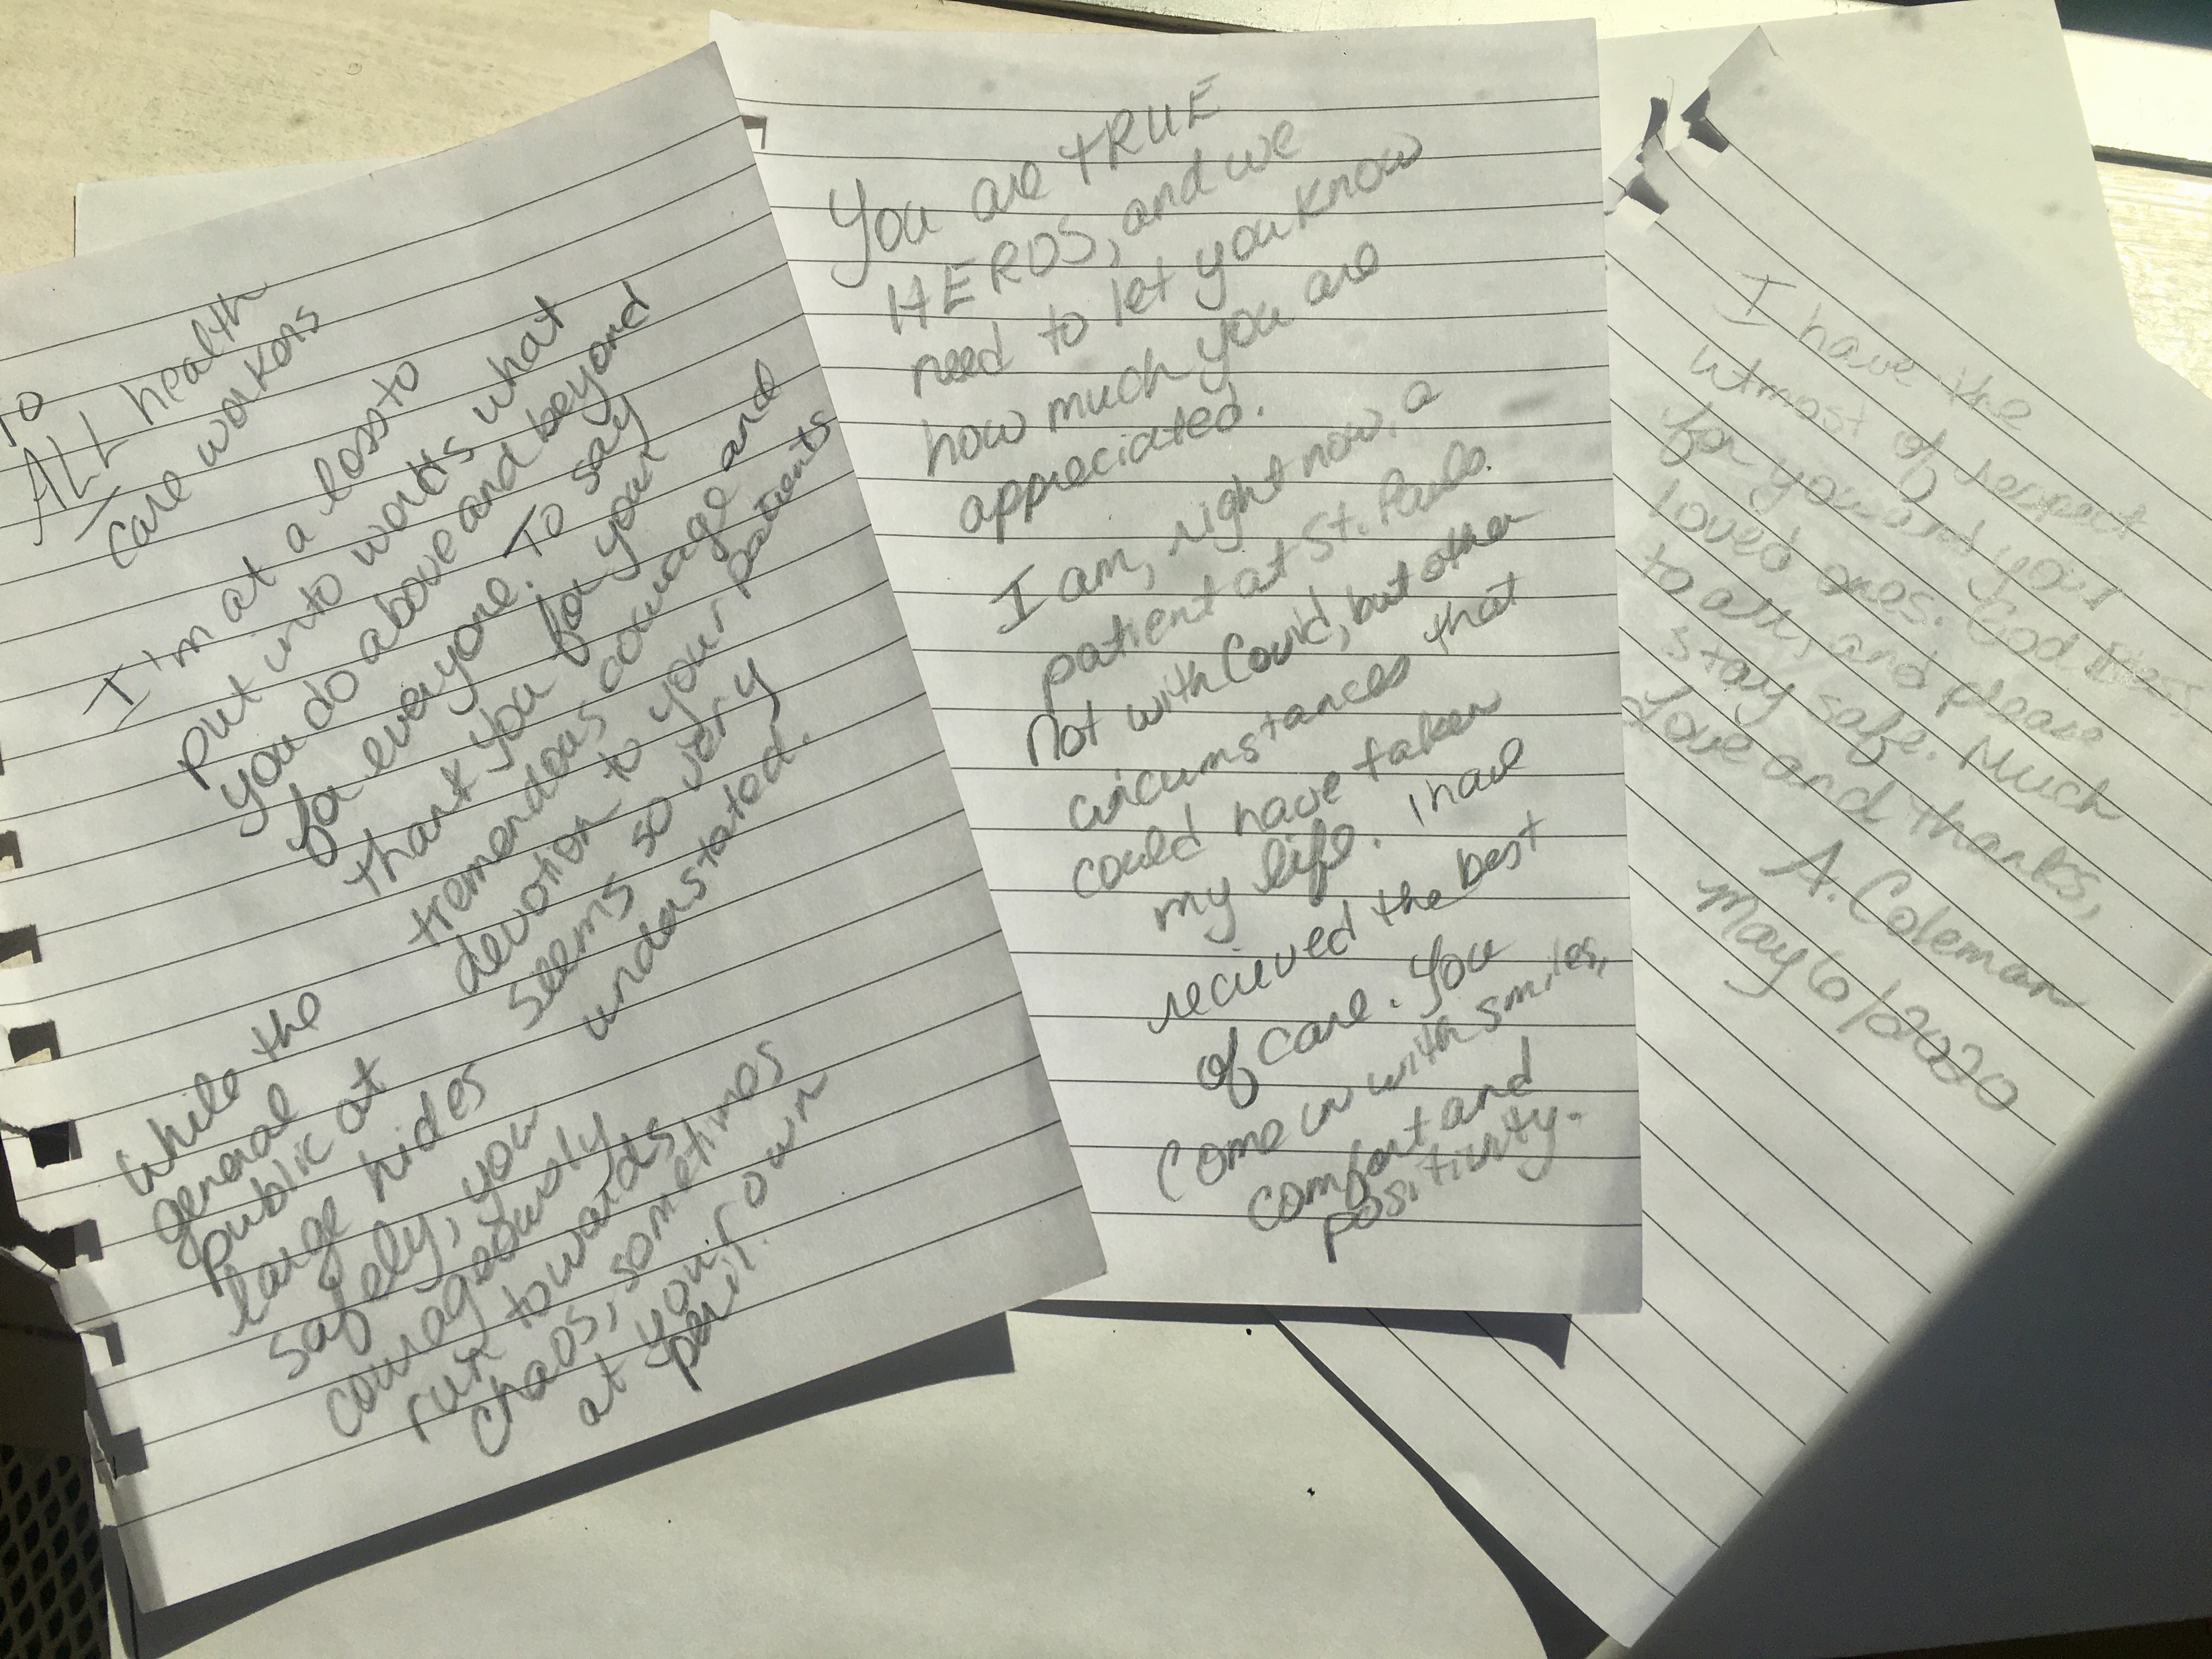 To
ALL health
care workers
I'm at a loss to
put into words what
you do above and beyond
for everyone. To say
thank you for your
tremendous courage and
devotion to your patients
seems so very
understated.
While the
general
public at
large hides
safely, you
courageously
run towards
chaos, sometimes
at your own
peril.
You are tRUE
HEROS, and we
need to let you know
how much you are
appreciated.
I am, right now, a
patient at St. Pauls.
Not with Covid, but other
circumstances that
could have taken
my life. I have
recieved the best
of care. You
come in with smiles,
comfort and
positivity.
I have the
utmost of respect
for you and your
loved ones. God Bless
to all, and please
stay safe. Much
love and thanks,
A. Coleman
May 6/2020